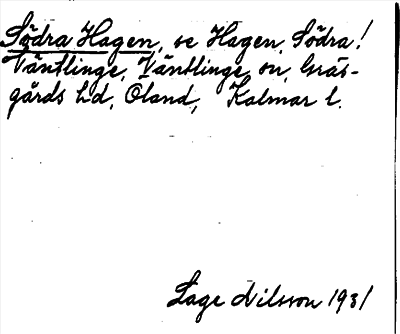 Södra Hagen, se Hagen, Södra!
Väntlinge, Väntlinge sn, Gräs-
gårds hd, Öland, Kalmar l.
Lage Nilsson 1931